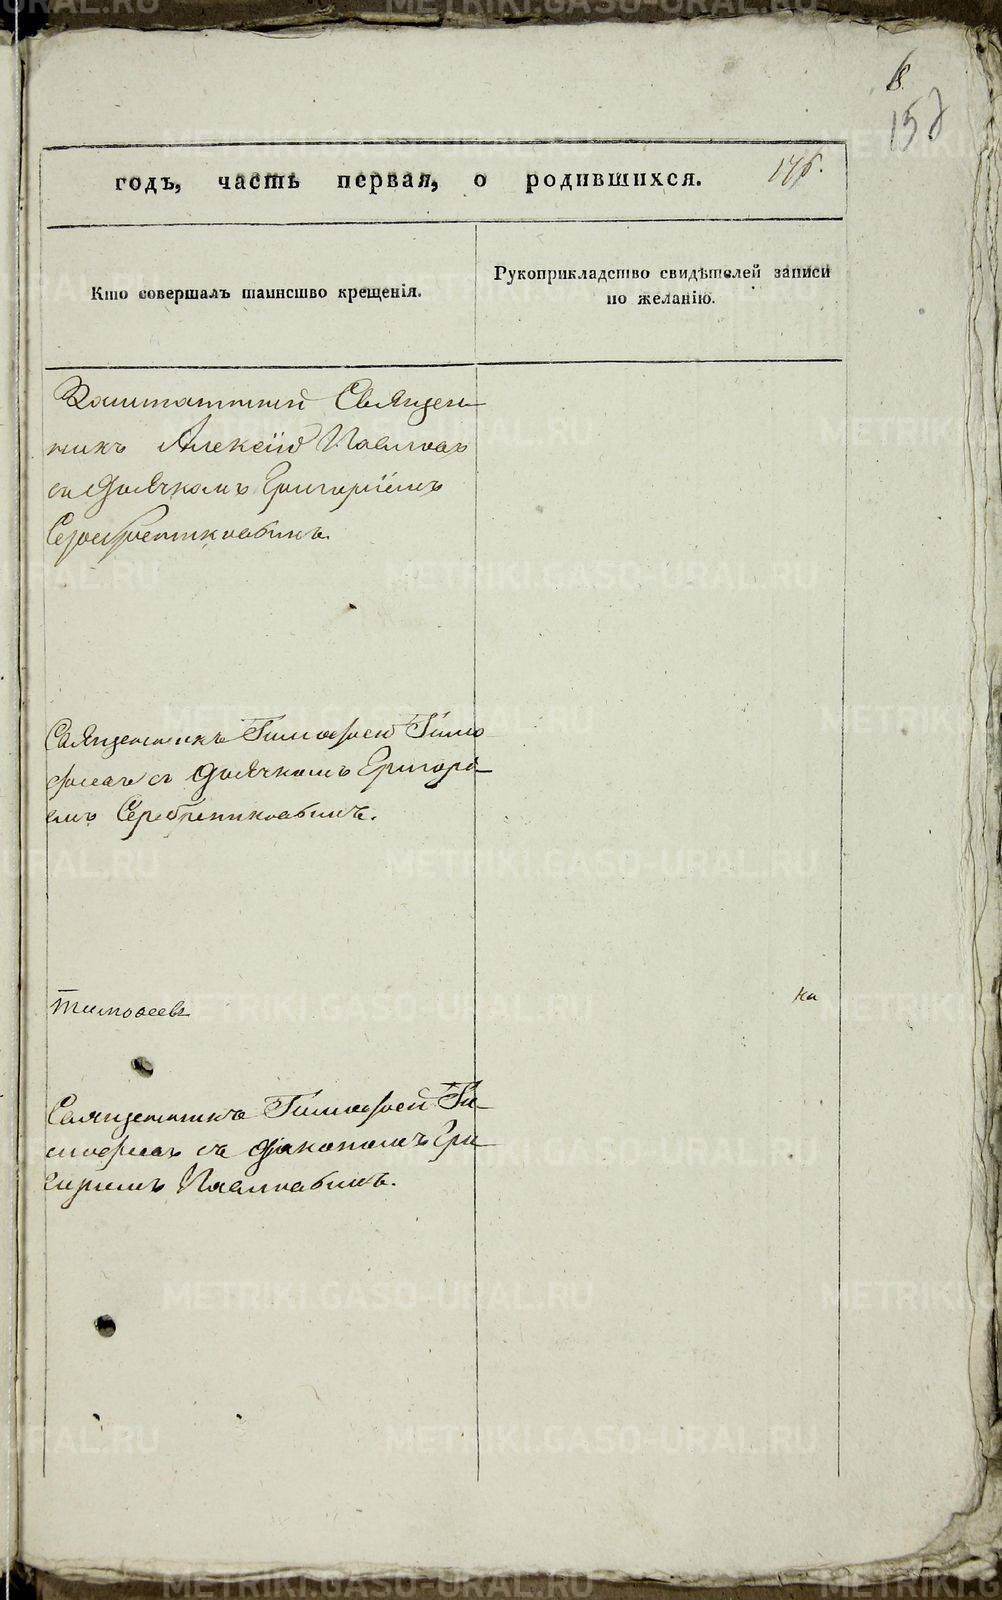 6.
157
годъ, часть первая, о родившихся.
176.
Кто совершалъ таинство крещенія.
Рукоприкладство свидѣтелей записи
по желанію.
Заштатный Священ-
никъ Алексій Павловъ
съ Дьячкомъ Григоріемъ
Серебрениковымъ.
Священникъ Тимофей Тимо
феевъ съ Дьячкомъ Григорі-
емъ Серебрениковымъ.
Тимофеевъ
на
Священникъ Тимофей Ти-
мофеевъ съ Дьякономъ Гри
горіемъ Павловымъ.
METRIKI.GASO-URAL.RU